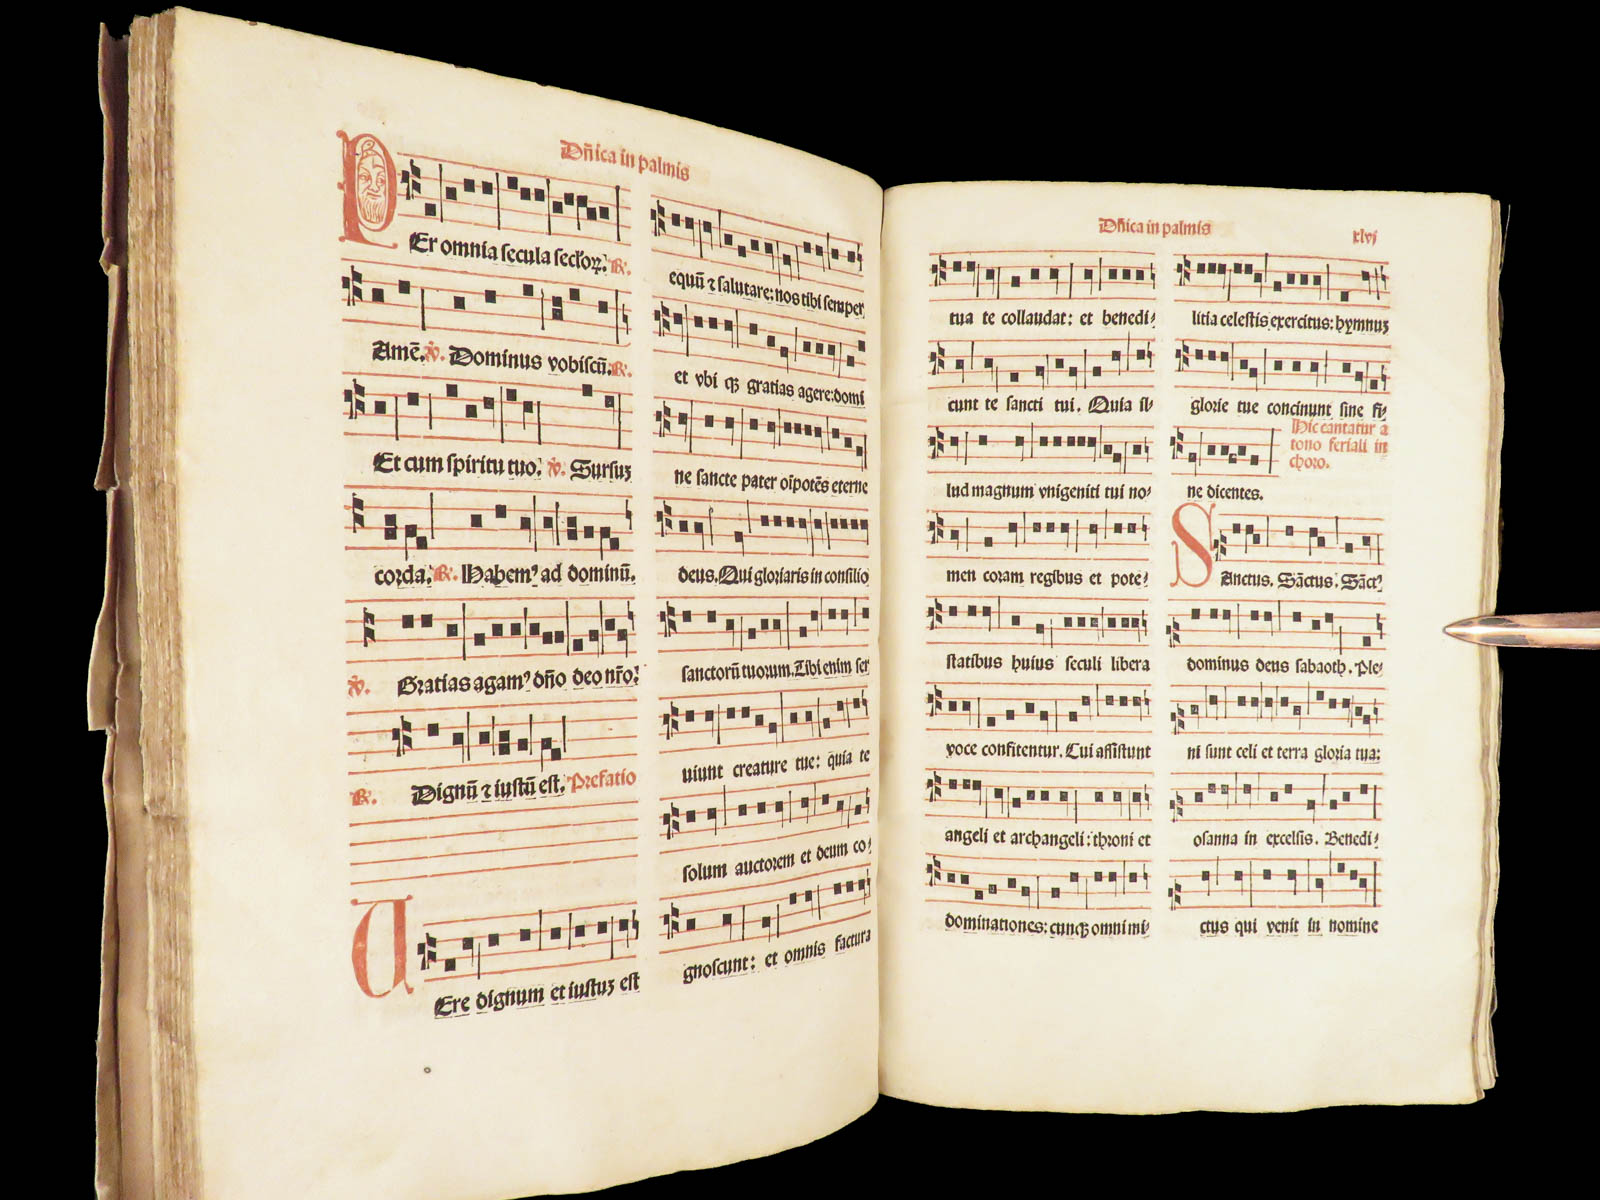 Dñica in palmis
PEr omnia ſecula ſeclоꝝ. ℟.
Amē. ℣. Dominus vobiſcũ. ℟.
Et cum ſpiritu tuo. ℣. Surſuꝫ
corda. ℟. Habemꝰ ad dominũ.
℣. Gratias agamꝰ dño deo nr̃o.
℟. Dignũ ⁊ iuſtũ eſt. Prefatio
UEre dignum et iuſtuꝫ eſt
equũ ⁊ ſalutare: nos tibi ſemper
et vbi qꝫ gratias agere: domi
ne ſancte pater oĩpotēs eterne
deus. Qui gloriaris in conſilio
ſanctorũ tuorum. Tibi enim ſer
uiunt creature tue: quia te
ſolum auctorem et deum co⸗
gnoſcunt: et omnis factura
Dñica in palmis xlvj
tua te collaudat: et benedi⸗
cunt te ſancti tui. Quia il⸗
lud magnum vnigeniti tui no⸗
men coram regibus et pote⸗
ſtatibus huius ſeculi libera
voce confitentur. Cui aſſiſtunt
angeli et archangeli: throni et
dominationes: cunqꝫ omni mi⸗
litia celeſtis exercitus: hymnuꝫ
glorie tue concinunt ſine fi⸗
Hic cantatur a
tono feriali in
choro.
ne dicentes.
SAnctus. Sãctus. Sãctꝰ
dominus deus ſabaoth. Ple⸗
ni ſunt celi et terra gloria tua:
oſanna in excelſis. Benedi⸗
ctus qui venit in nomine